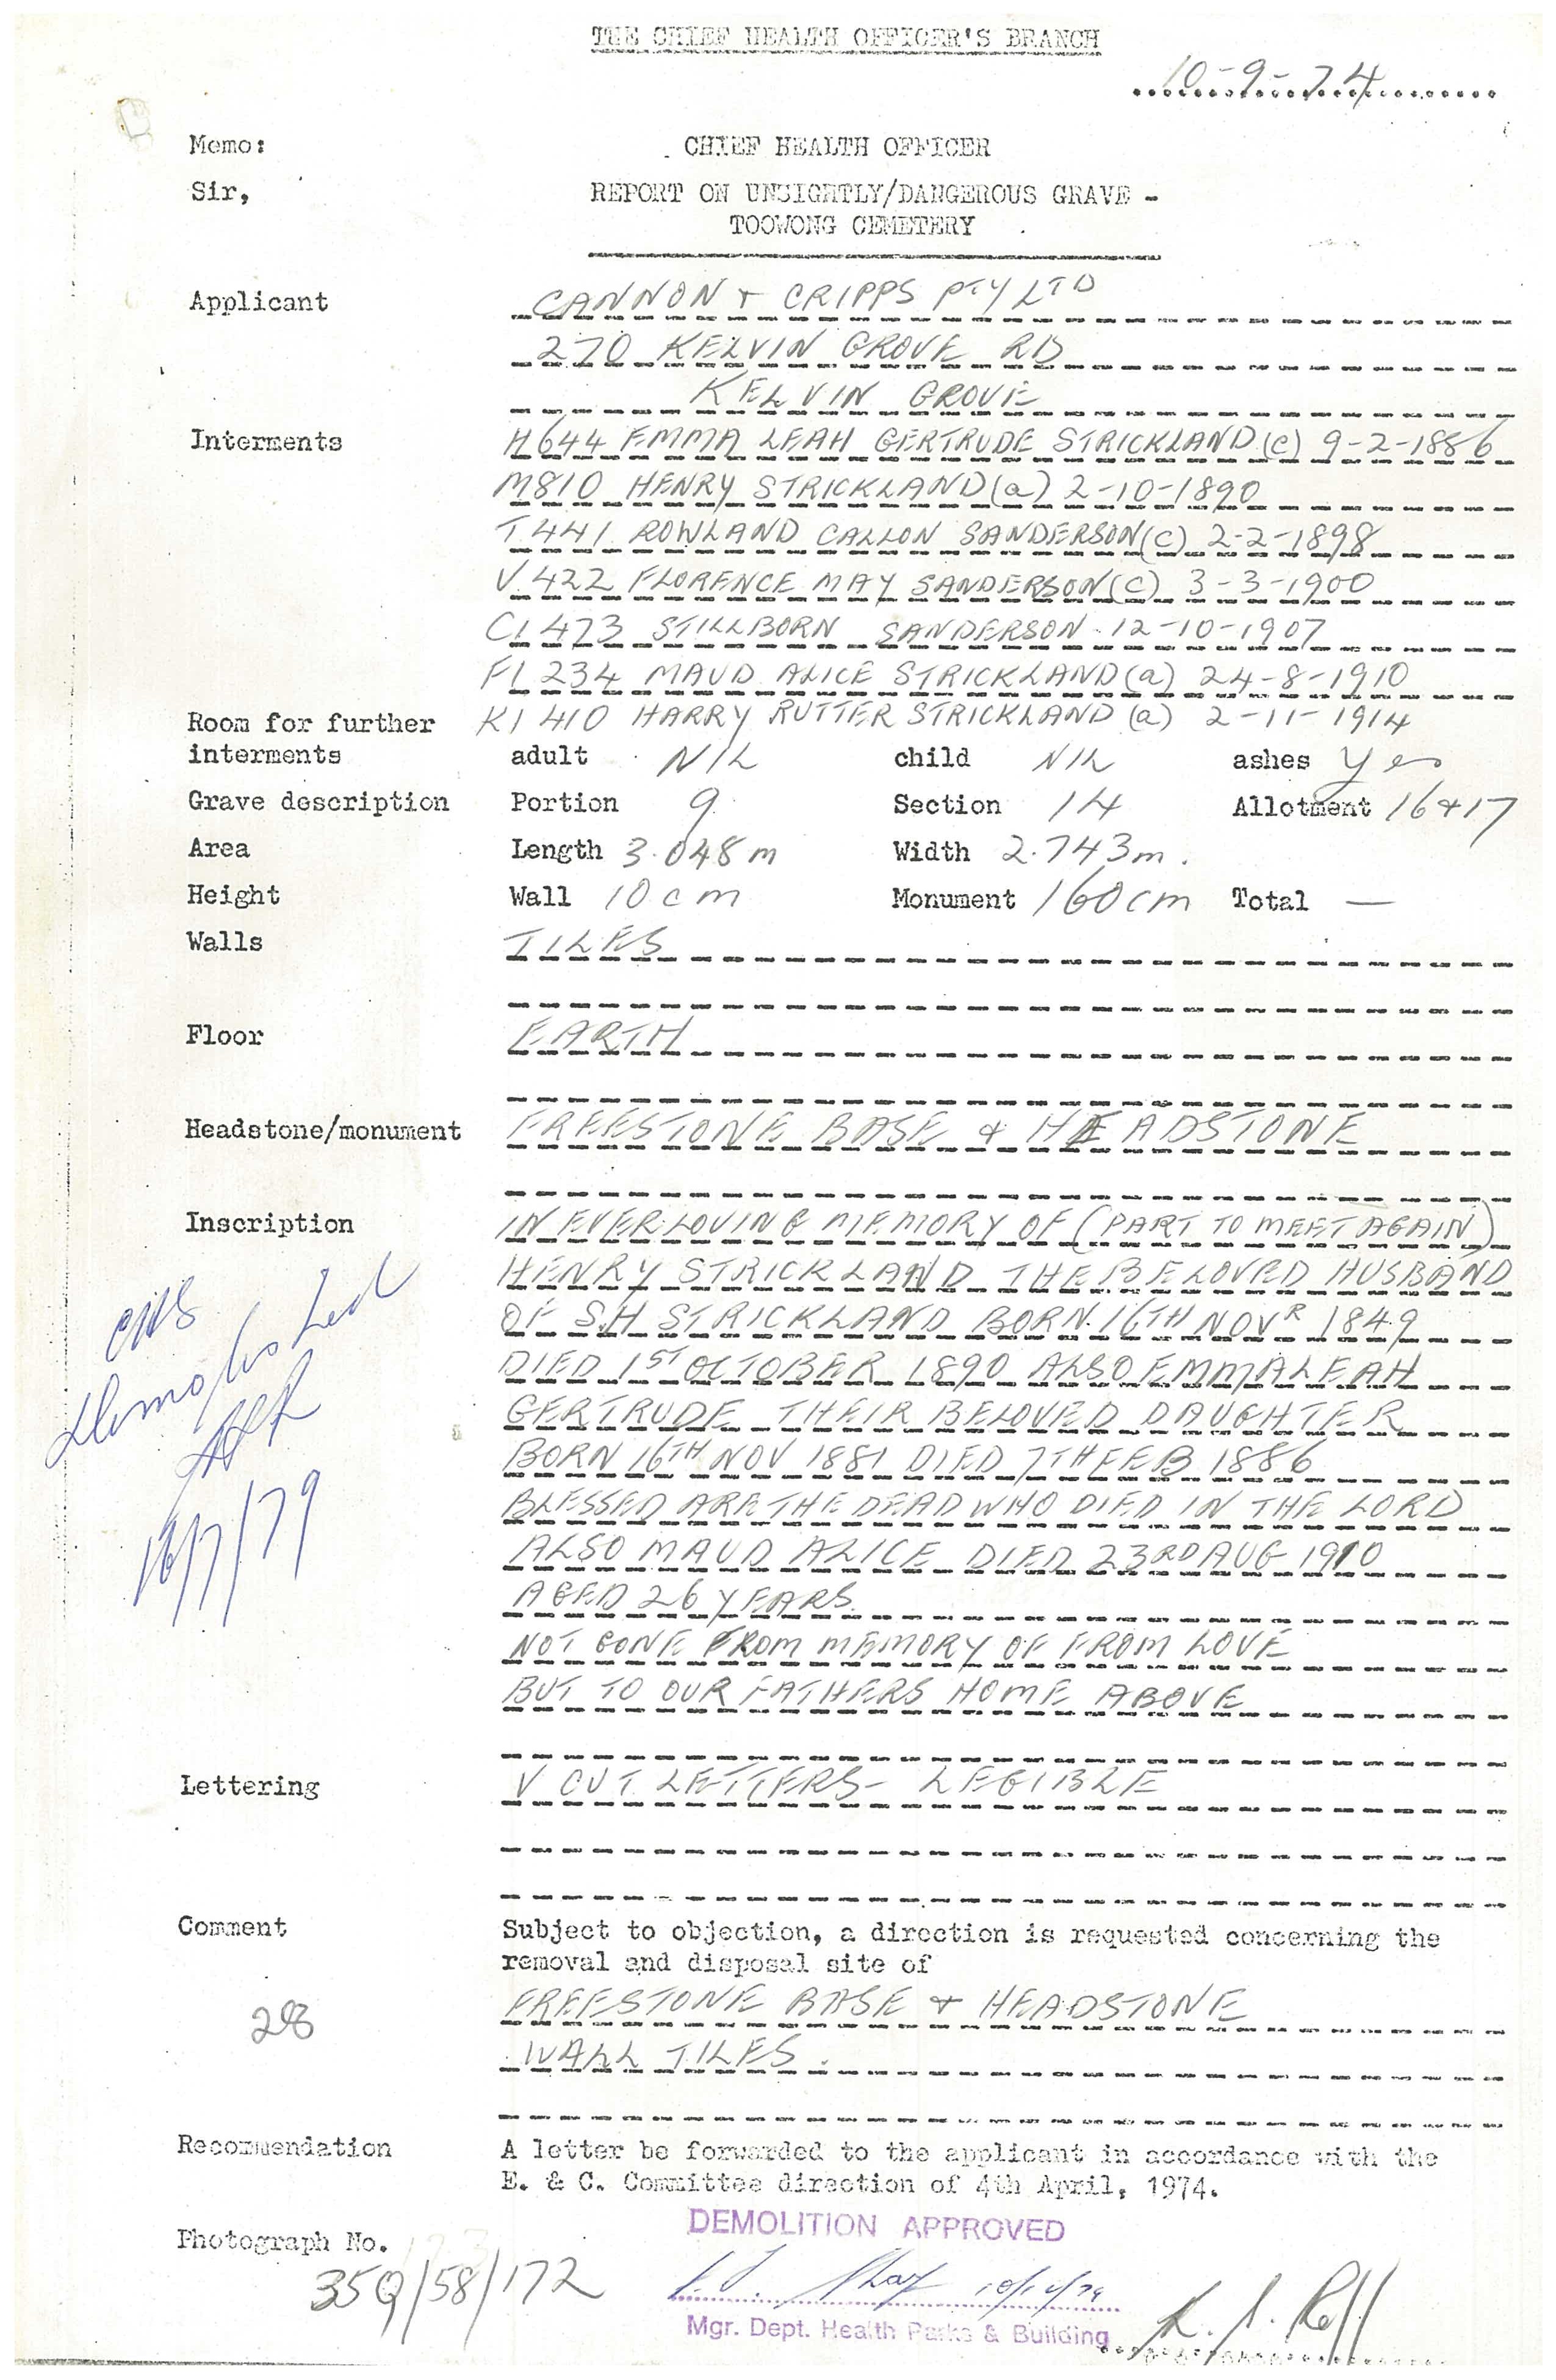 THE CHIEF HEALTH OFFICER'S BRANCH
10-9-74
Memo: CHIEF HEALTH OFFICER
Sir, REPORT ON UNSIGHTLY/DANGEROUS GRAVE -
TOOWONG CEMETERY
Applicant CANNON + CRIPPS PTY LTD
270 KELVIN GROVE RD
KELVIN GROVE
Interments H644 EMMA LEAH GERTRUDE STRICKLAND (c) 9-2-1886
M810 HENRY STRICKLAND (a) 2-10-1890
T441 ROWLAND CALLON SANDERSON (c) 2-2-1898
V.422 FLORENCE MAY SANDERSON (C) 3-3-1900
C1 473 STILLBORN SANDERSON. 12-10-1907
F1 234 MAUD ALICE STRICKLAND (a) 24-8-1910
Room for further K1 410 HARRY RUTTER STRICKLAND (a) 2-11-1914
interments adult NIL child NIL ashes yes
Grave description Portion 9. Section 14 Allotment 16+17
Area Length 3.048m Width 2.743m.
Height Wall 10cm Monument 160cm Total —
Walls TILES
Floor EARTH
Headstone/monument FREESTONE BASE + HEADSTONE
Inscription IN EVER LOVING MEMORY OF (PART TO MEET AGAIN)
HENRY STRICKLAND THE BELOVED HUSBAND
OF S.H STRICKLAND BORN 16TH NOVR 1849
DIED 1ST OCTOBER 1890 ALSO EMMA LEAH
GERTRUDE THEIR BELOVED DAUGHTER
BORN 16TH NOV 1881 DIED 7TH FEB 1886
BLESSED ARE THE DEAD WHO DIED IN THE LORD
ALSO MAUD ALICE DIED 23RD AUG 1910
AGED 26 YEARS.
NOT GONE FROM MEMORY OF FROM LOVE
BUT TO OUR FATHERS HOME ABOVE
Demolished
16/7/79
Lettering V CUT LETTERS - LEGIBLE
Comment Subject to objection, a direction is requested concerning the
removal and disposal site of
28 FREESTONE BASE + HEADSTONE
WALL TILES.
Recommendation A letter be forwarded to the applicant in accordance with the
E. & C. Committee direction of 4th April, 1974.
DEMOLITION APPROVED
Photograph No.
35Q/58/172
Mgr. Dept. Health Parks & Building